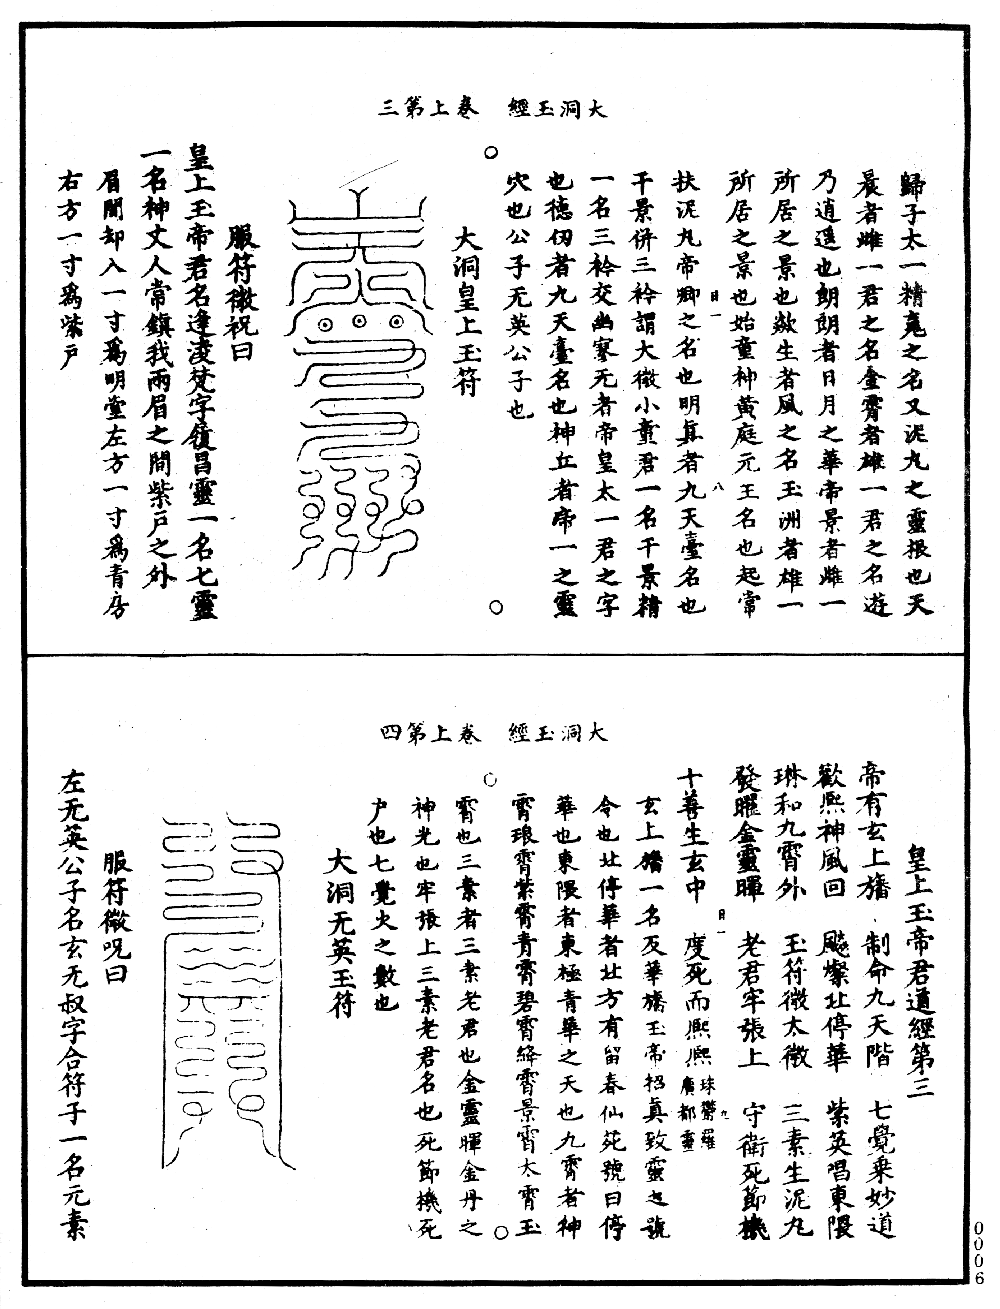 大洞玉經　卷上第三
歸子太一精魂之名又泥丸之靈根也天
晨者雌一君之名金霄者雄一君之名遊
乃逍遥也朗朗者日月之華帝景者雌一
所居之景也歘生者風之名玉洲者雄一
所居之景也始童神黄庭元王名也起常
日一　八
扶泥丸帝卿之名也明真者九天臺名也
千景併三衿謂大微小童君一名千景精
一名三衿交幽寥无者帝皇太一君之字
也德仞者九天臺名也神丘者帝一之靈
穴也公子无英公子也
大洞皇上玉符
服符微祝曰
皇上玉帝君名逢凌梵字履昌靈一名七靈
一名神丈人常鎮我兩眉之間紫户之外
眉間却入一寸爲明堂左方一寸爲青房
右方一寸爲紫户
大洞玉經　卷上第四
皇上玉帝君道經第三
帝有玄上旛　制命九天階　七覺乘妙道
歡熈神風回　飈燦北停華　紫英唱東隈
琳和九霄外　玉符微太微　三素生泥丸
發曜金靈暉　老君牢張上　守衛死節機
日一　九
十善生玄中　度死而熈熈　珠鬱羅
廣都靈
玄上旛一名及華旛玉帝招真致靈之號
令也北停華者北方有留春仙苑號曰停
華也東隈者東極青華之天也九霄者神
霄琅霄紫霄青霄碧霄絳霄景霄太霄玉
霄也三素者三素老君也金靈暉金丹之
神光也牢張上三素老君名也死節機死
户也七覺火之數也
大洞无英玉符
服符微呪曰
左无英公子名玄无叔字合符子一名元素
0006